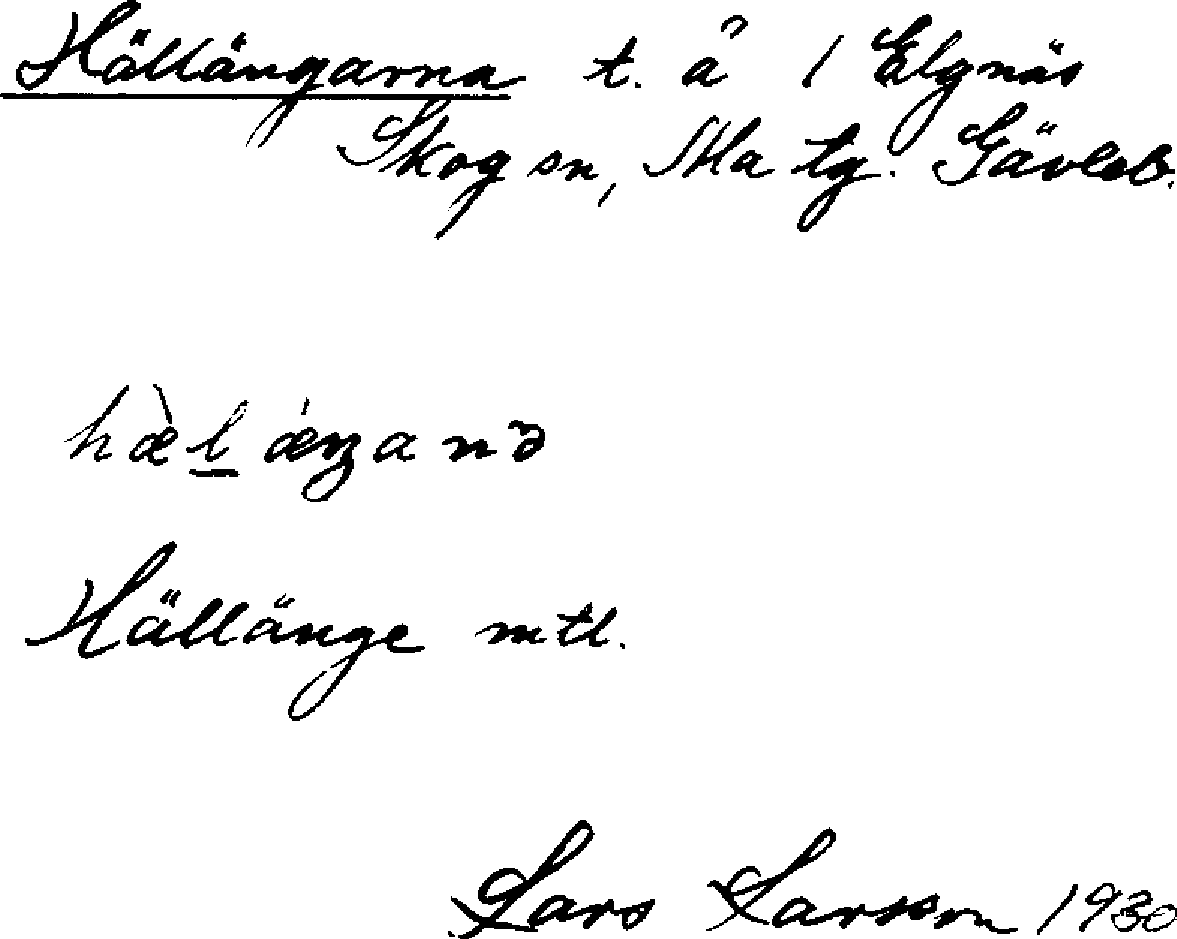 Hällängarna t. å 1 Elgnäs
Skog sn, Ma tg. Gävleb.
hæ̀l ǽŋanə
Hällänge mtl.
Lars Larsson 1930